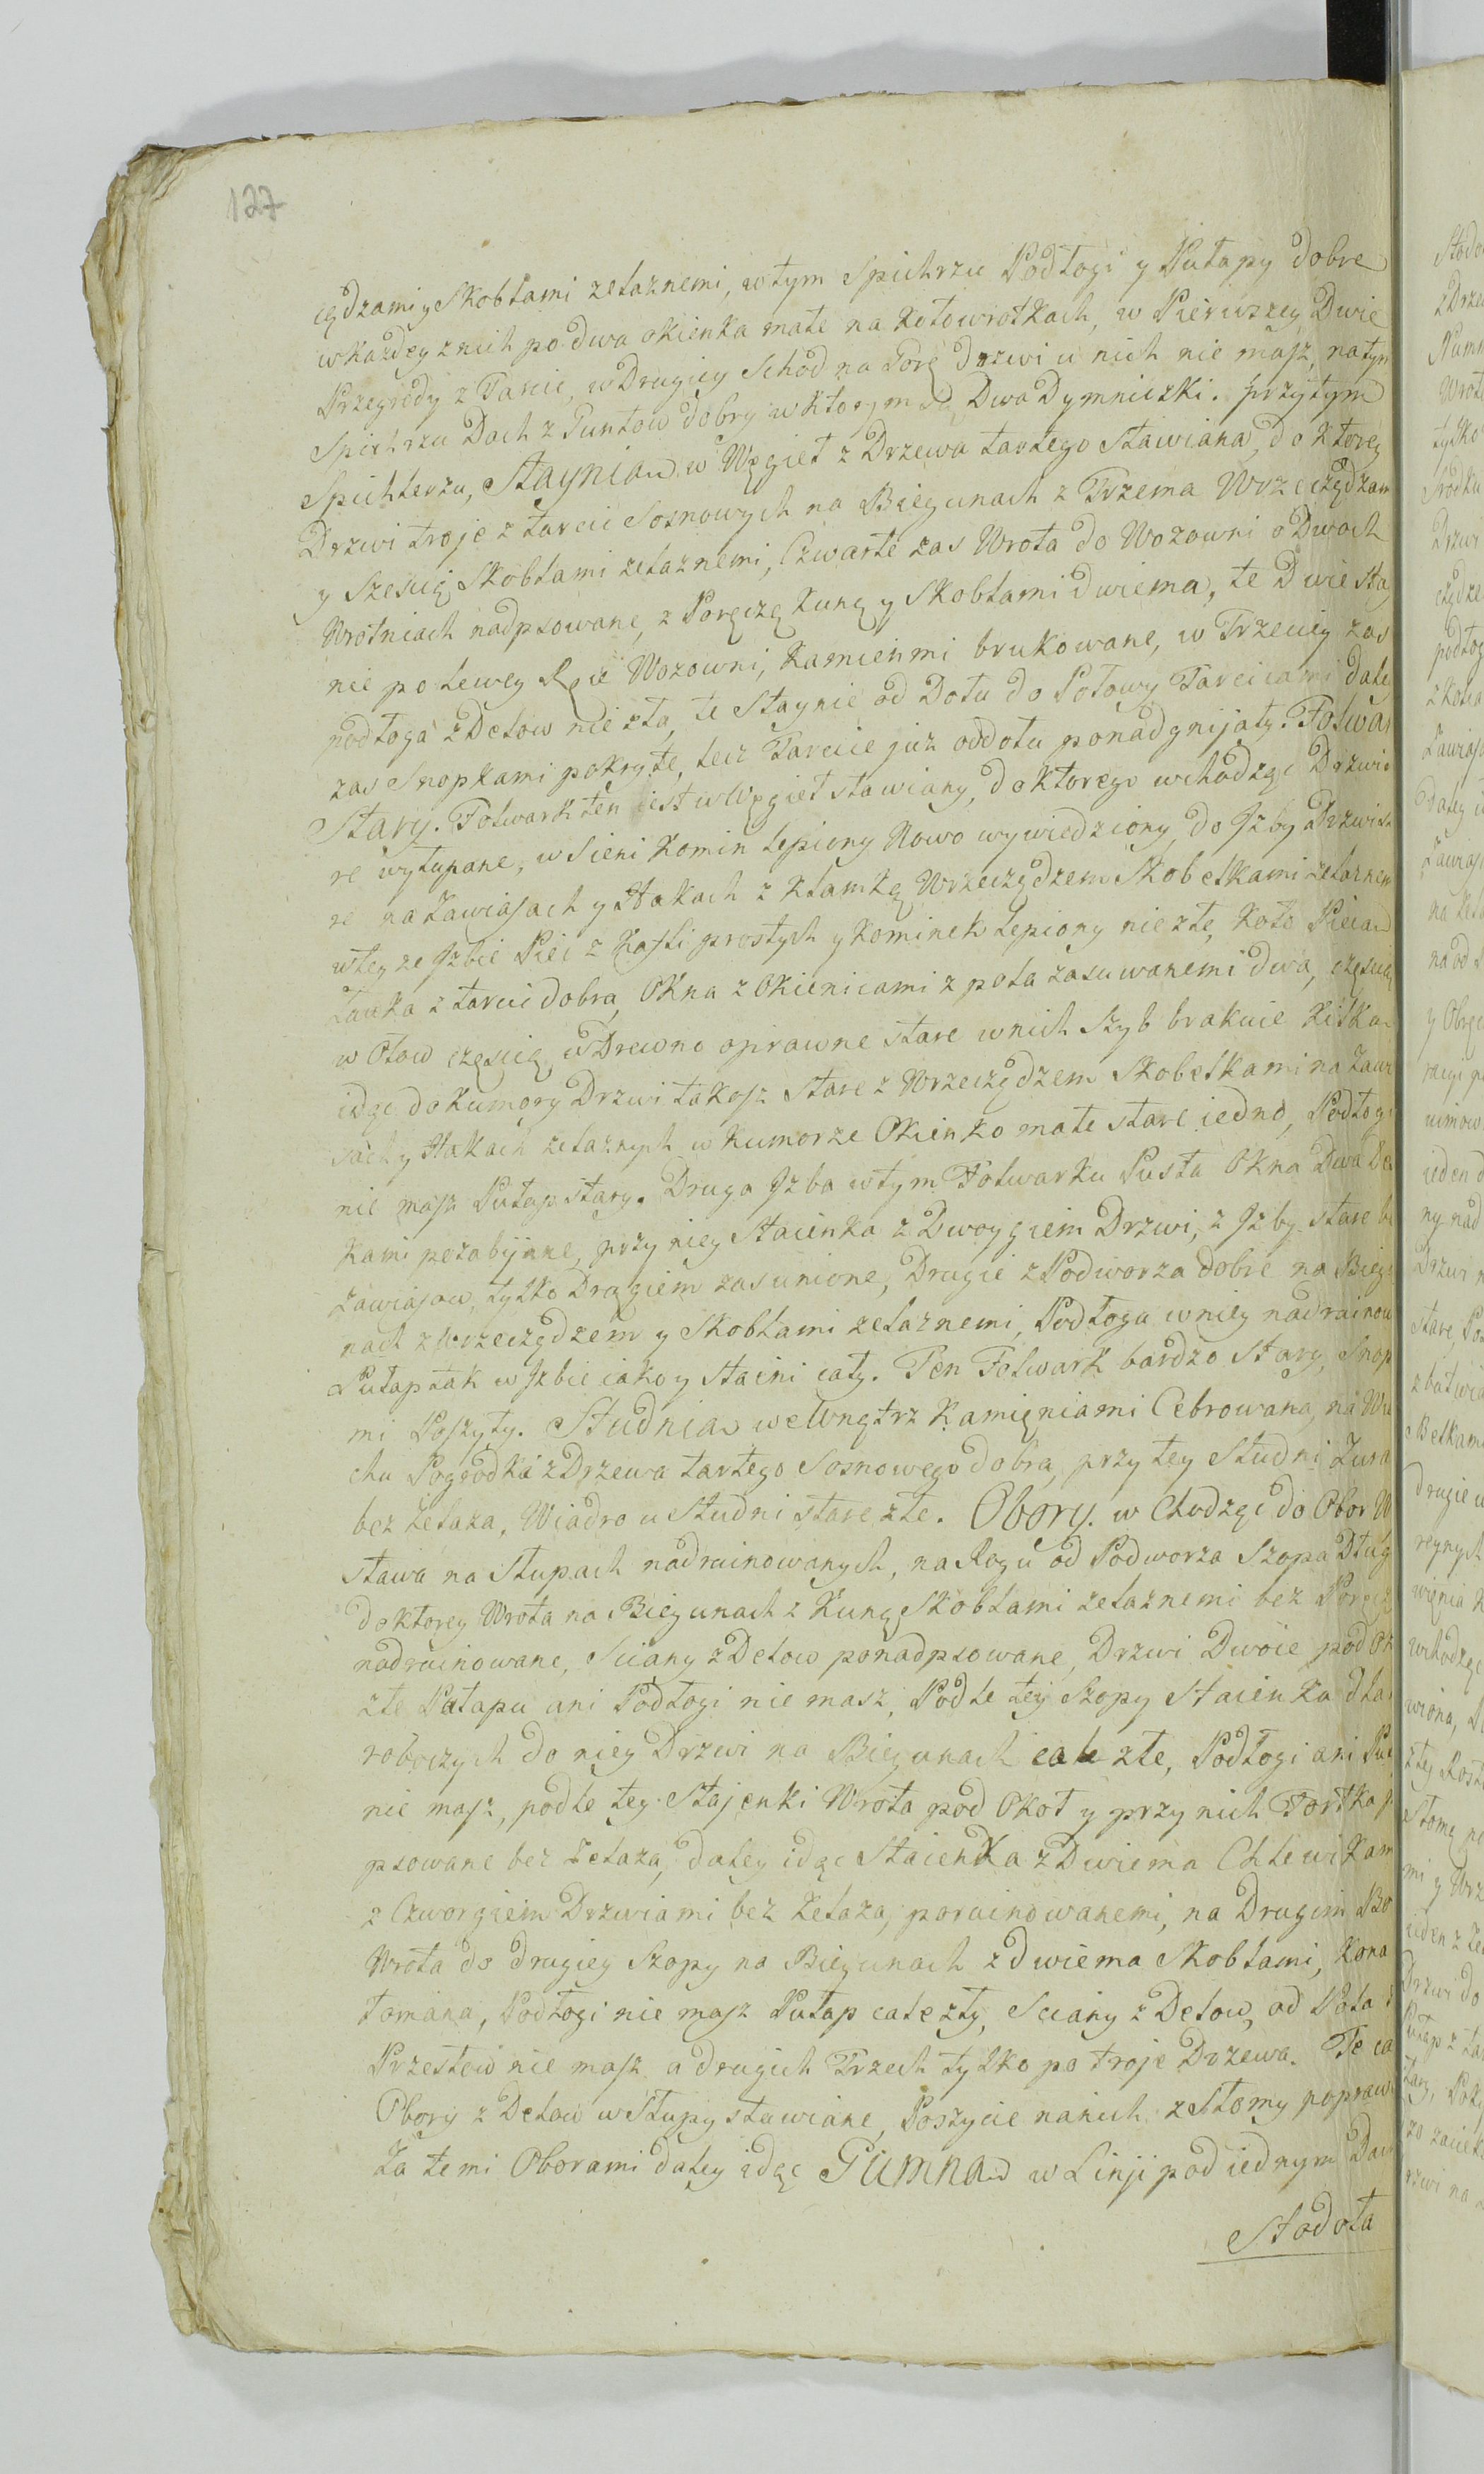 127
cądzami y Skobłami zelaznemi, w tym Spichrzu Podłogi y Pułapy dobre
w kazdey znich po dwa okienka małe na Kołowrotkach, w Pierwszey Dwie
Przegrody z Tarcic, w Drugiey Schod na Gorę drzwi u nich nie masz, natym
Spichrzu Dach z Guntow dobry w ktorym są Dwa Dymniczki. przytym
Spichlerzu, Staynia w Węgieł z Drzewa tartego Stawiana, do Ktorey
Drzwi troje z tarcic Sosnowych na Biegunach z Trzema Wrzeciądzam
y Sześcią Skobłami zelaznemi, Czwarte zas Wrota do Wozowni o Dwoch
Wrotniach nadpsowane, z Poręczą Kuną y Skobłami dwiema, te Dwie sta
nie po lewey Ręce Wozowni, Kamieńmi brukowane, w Trzeciey zas
podłoga z Delow nie zła, te Staynie od Dołu do Połowy Tarcicami daley
zas Snopkami pokryte, lecz Tarcice już oddołu ponadgnijały. Folwar
Stary. Folwark ten iest w Węgieł stawiany, do ktorego wchodząc Drzwi
re wyłupane, w Sieni Komin lepiony Nowo wywiedziony, do Izby Drzwi st
re na Zawiasach y Hakach z Klamką Wrzeciądzem Skobelkami zelaznem
wtey ze Izbie Piec z Kafli prostych y Kominek lepiony niezłe, Koło Pieca
Ławka z tarcic dobra, Okna z Okienicami z pola zasuwanemi dwa, częscią
w Ołow częscią w Drewno oprawne stare wnich szyb brakuie Kilka
idąc do Kumory Drzwi takosz Stare z Wrzeciądzem Skobelkami na Zawi
sach y Hakach zelaznych w Kumorze Okienko małe stare iedno, Podłogi
nie masz Pułap stary. Druga Izba wtym Folwarku Pusta Okna Dwa De
kami pozabijane, przy niey Staienka z Dwoygiem Drzwi, z Izby stare be
Zawiasow, tylko Drągiem zasunione, Drugie z Podworza dobre na Biegu
nach z Wrzeciądzem y Skobłami zelaznemi, Podłoga wniey nadrainow
Pułap tak w Izbie iako y Staini cały. Ten Folwark bardzo Stary, Snop
mi Poszyty. Studnia we Wnątrz Kamięniami Cebrowana, na Wie
chu Pogrodka z Drzewa tartego Sosnowego dobra, przy tey Studni Zura
bez Zelaza, Wiadro u Studni stare złe. Obory. w Chodząc do Obor W
stawa na Słupach nadrainowanych, na Rogu od Podworza Szopa Dług
do ktorey Wrota na Biegunach z Kuną Skobłami zelaznemi bez Poręcz
nadrainowane, Sciany z Delow ponadpsowane, Drzwi Dwoie pod Ok
złe Pułapu ani Podłogi nie masz, Podle tey Szopy Staienka dla
roboczych do niey Drzwi na Biegunach całe złe, Podłogi ani Pu
nie masz, podle tey Stajenki Wrota pod Okoł y przy nich Fortka
psowane bez Zelaza, daley idąc Staienka z Dwiema Chlewikam
z Czworgiem Drzwiami bez Zelaza, porainowanemi, na Drugim Bo
Wrota do drugiey Szopy na Biegunach z dwiema Skobłami, Kona
łomana, Podłogi nie masz Pułap całe zły, Sciany z Delow, od Pola
Przesłow nie masz a drugich Trzech tylko po troje Drzewa. Te ca
Obory z Delow w Słupy stawiane, Poszycie nanich z Słomy popraw
Za temi Oborami daley idąc Gumna w Linji pod iednym Dac
Stodoła